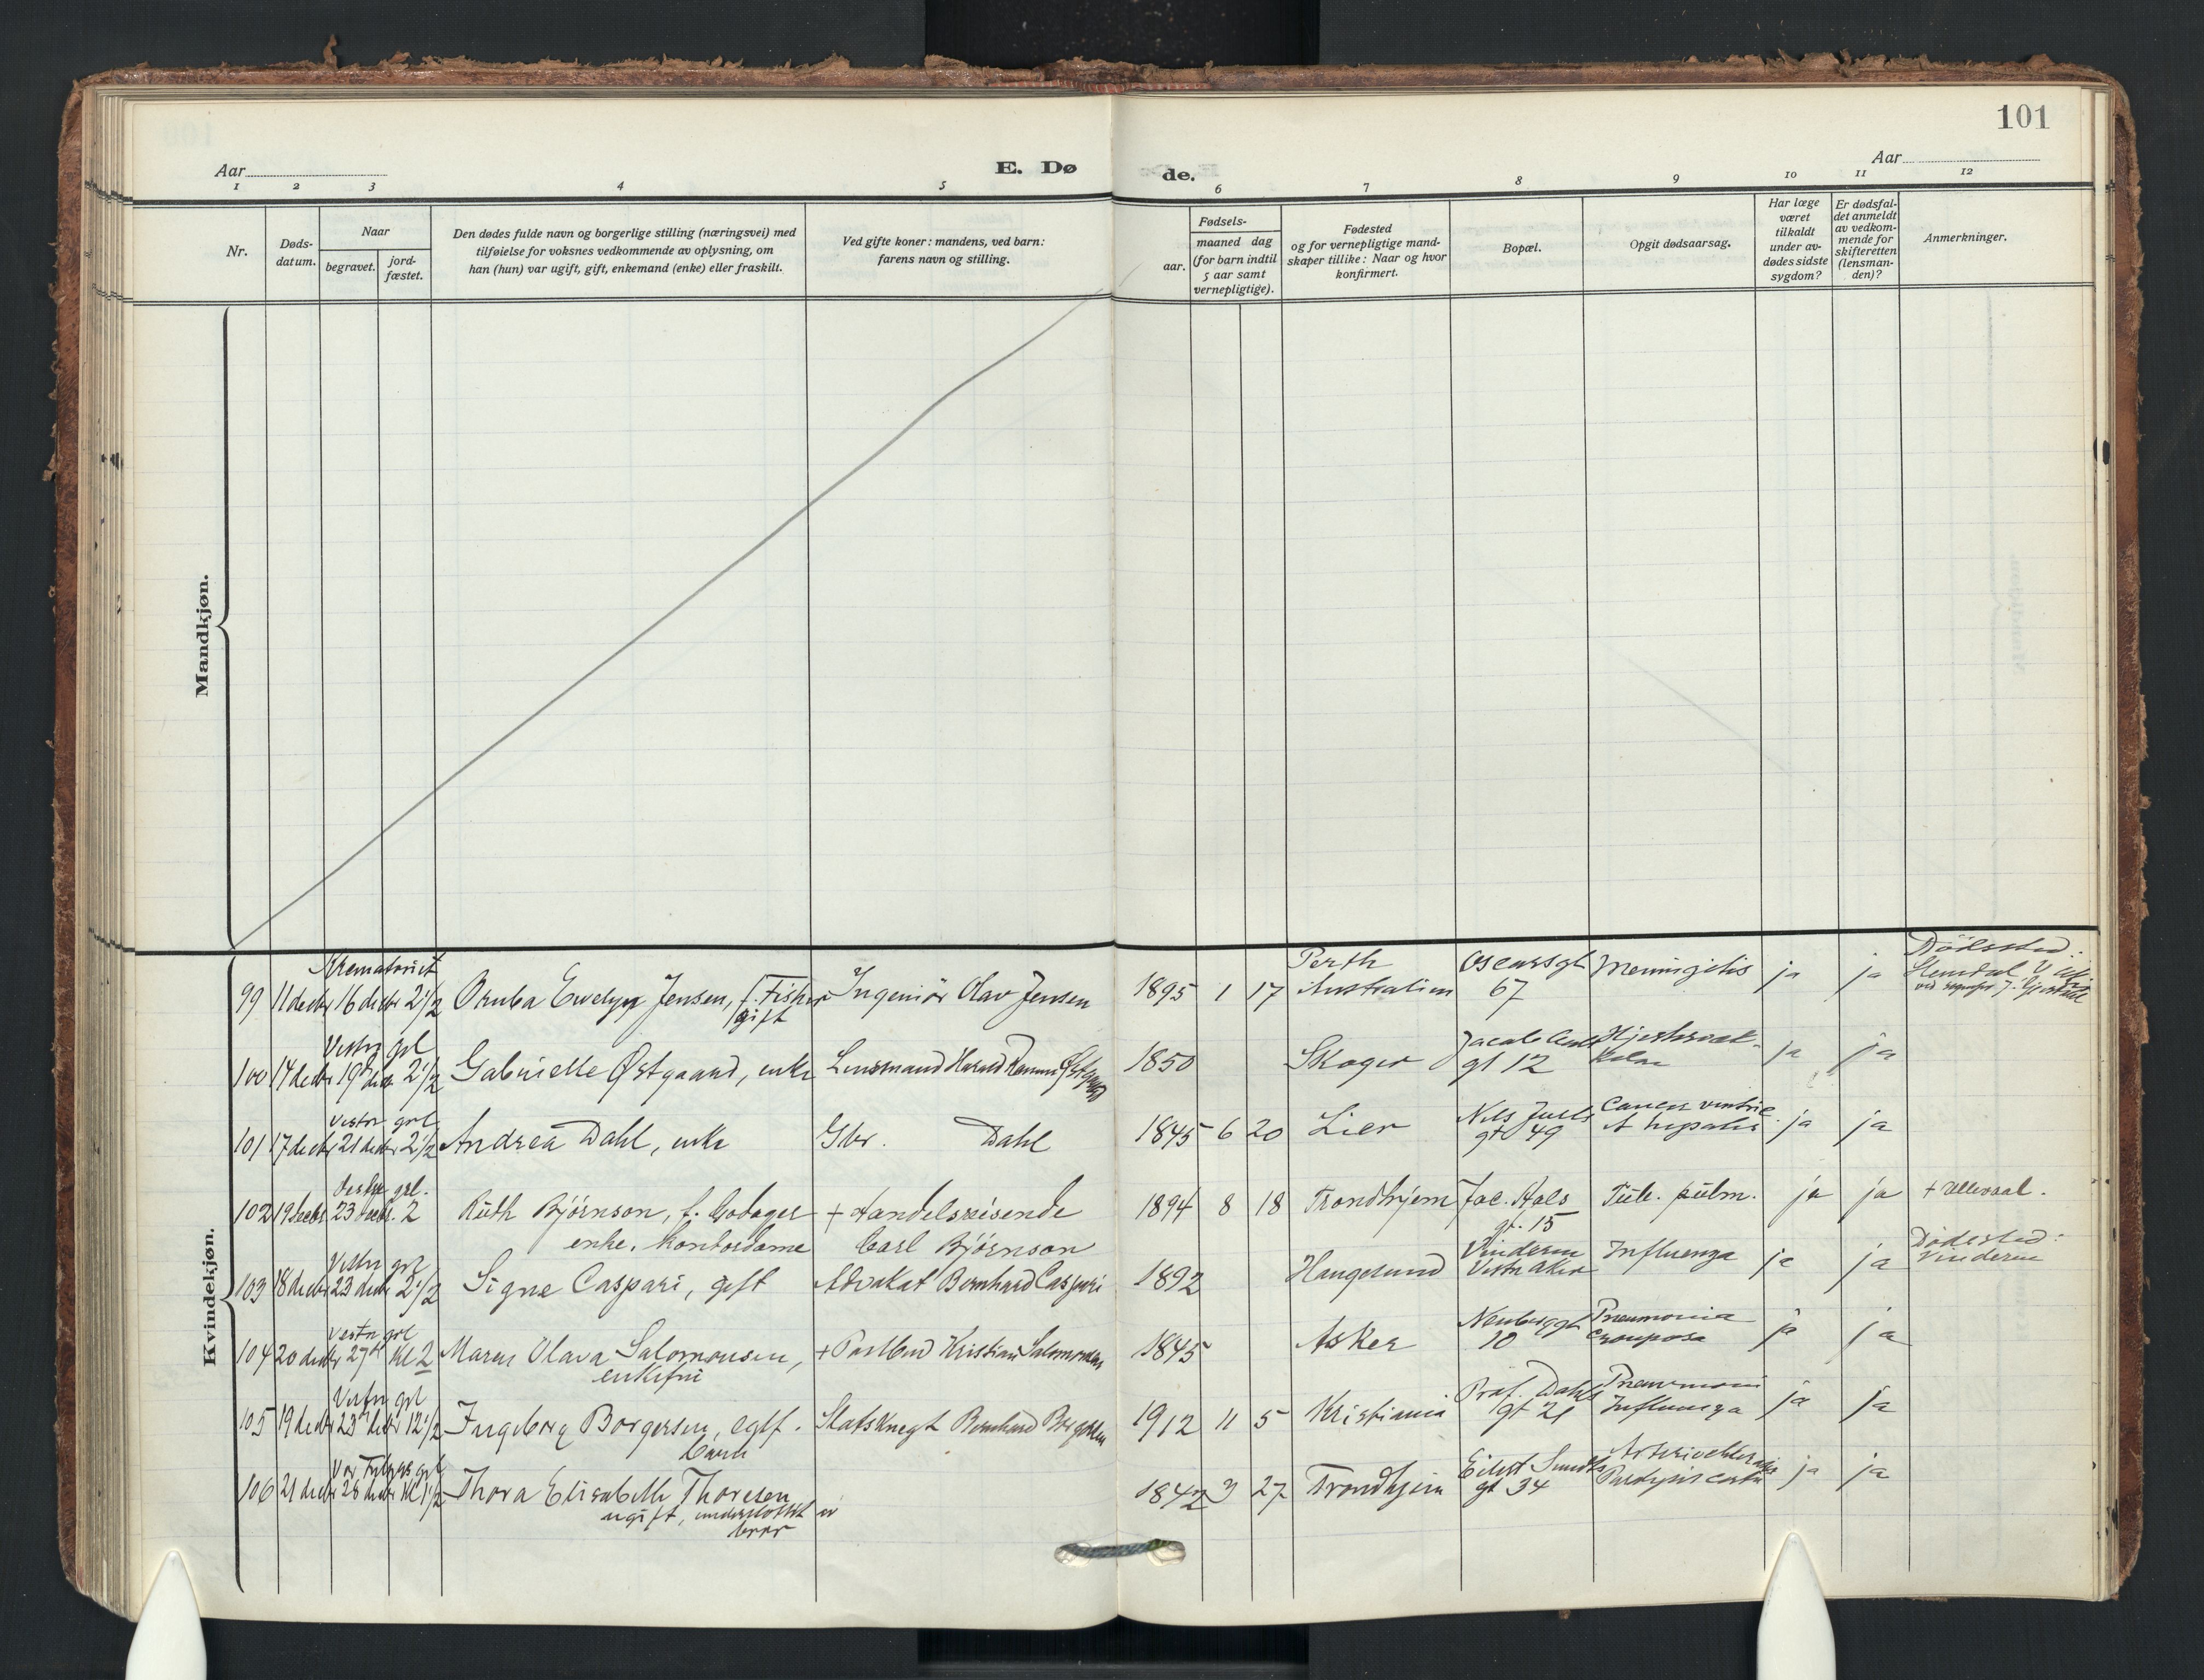 101
Aar
E. Dø
de.
Aar
1 2 3 4 5 6 7 8 9 10 11 12
Nr.
Døds-
datum.
Naar
begravet.
jord-
fæstet.
Den dødes fulde navn og borgerlige stilling (næringsvei) med
tilføielse for voksnes vedkommende av oplysning, om
han (hun) var ugift, gift, enkemand (enke) eller fraskilt.
Ved gifte koner: mandens, ved barn:
farens navn og stilling.
Fødsels-
aar.
maaned dag
(for barn indtil
5 aar samt
vernepligtige).
Fødested
og for vernepligtige mand-
skaper tillike: Naar og hvor
konfirmert.
Bopæl.
Opgit dødsaarsag.
Har læge
været
tilkaldt
under av-
dødes sidste
sygdom?
Er dødsfal-
det anmeldt
av vedkom-
mende for
skifteretten
(lensman-
den)?
Anmerkninger.
Mandkjøn.
Kvindekjøn.
Krematoriet Perth Oscarsgt Dödssted:
99 11 decbr 16 decbr 2 1/2 Jensen, f. Fisher Ingeniör Olav Jensen 1895 1 17 Australien 67 Meningitis ja ja
gift
Vestre grl
100 17 decbr 19 2 1/2 Gabrielle Østgaard, enke Lensmand Østgaard 1850 Skoger gt 12 ja ja
Vestre grl
101 17 decbr 21 decbr 2 1/2 Andrea Dahl, enke Gbr. Dahl 1845 6 20 Lier Nils Juels gt 49 Cancer ventric. et hepatis ja ja
Vestre grl.
102 19 decbr 23 decbr. 2 Ruth Bjørnson, f. + Handelsreisende 1894 8 18 Trondhjem Jac. Aals Tub. pulm. ja ja + Ullevaal.
enke. Kontordame Carl Bjørnson gt. 15
Vestre grl Vinderen Dødssted:
103 18 decbr 23 decbr 2 1/2 Signe Caspari, gift Advokat Bernhard Caspari 1892 Haugesund Vestre Aker Influenza ja ja Vinderen
Vestre grl
104 20 decbr 27 kl 2 Maren Olava Salomonsen, + Postbud Kristian Salomonsen 1845 Asker Neuberggt 10 Pneumonia crouposa ja ja
enkefru
Vestre grl Prof. Dahls
105 19 decbr 23 decbr 12 1/2 Ingeborg Borgersen, egtf. Bernhard Borgersen 1912 11 5 Kristiania gt 21 Pneumoni Influenza ja ja
barn
Vor Frelsers grl Eilert Sundts
106 21 decbr 28 decbr kl 1 1/2 Thora Elisabeth Thoresen 1842 3 27 Trondhjem gt 34 ja ja
ugift, understöttet av